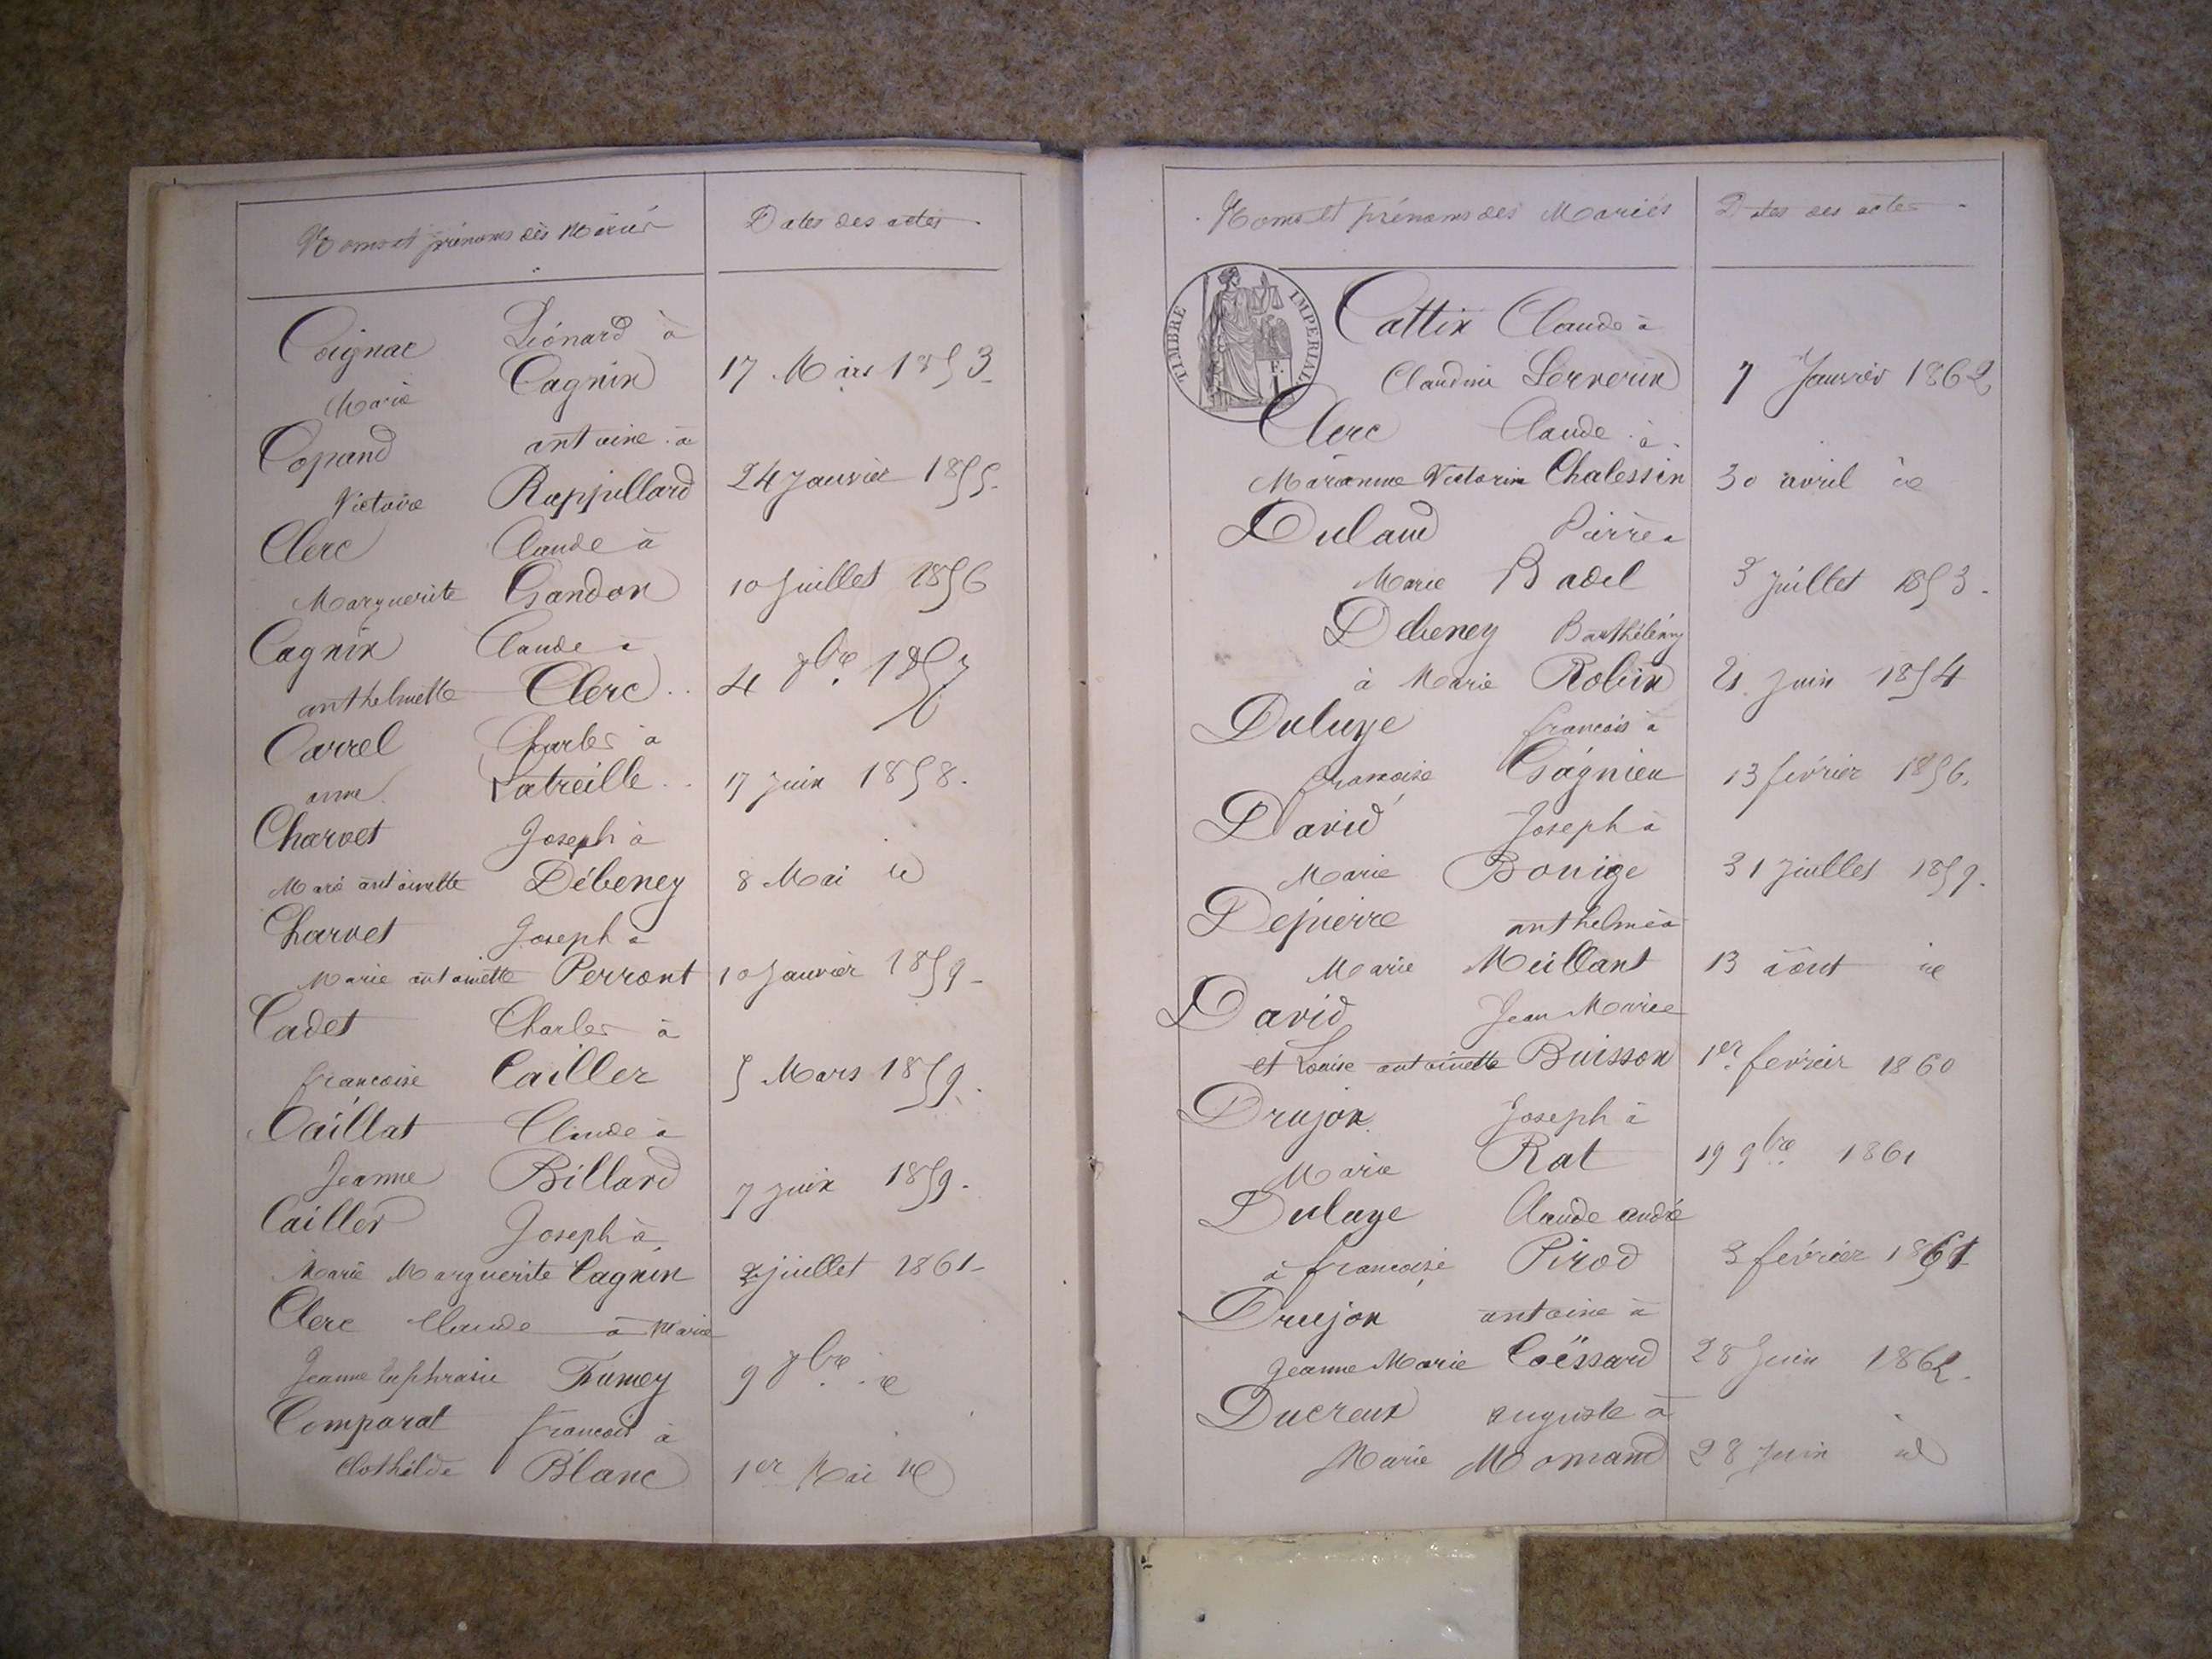 Noms et prénoms des Mariés Dates des actes
Coignac Léonard à
Marie Cagnin 17 Mars 1853
Copand antoine à
Victoire Rappillard 24 Janvier 1855
Clerc Claude à
Marguerite Gandon 10 Juillet 1856
Cagnin Claude à
anthelmette Clerc 1857
Carrel Charles à
anne Latreille 17 Juin 1858
Charvet Joseph à
Marie antoinette Débeney 8 Mai id
Charvet Joseph à
Marie antoinette Perront 10 Janvier 1859
Cadet Charles à
françoise Cailler 5 Mars 1859
Caillat Claude à
Jeanne Billard 7 juin 1859
Cailler Joseph à
Marie Marguerite Cagnin juillet 1861
Clerc Claude à Marie
Jeanne Euphrasie Fumey 9 id
Comparat francois à
Clothilde Blanc 1er Mai id
Noms et prénoms des Mariés Dates des actes
TIMBRE IMPERIAL
Cattin Claude à
Claudine 7 Janvier 1862
Clerc Claude à
Marianne Victorine Chalessin 30 avril id
Dulaud Pierre à
Marie Badel 3 Juillet 1853
Debeney Barthélémy
à Marie Robin 21 Juin 1854
Duluye francois à
francoise Gagnieu 13 février 1856
David Joseph à
Marie Bouige 31 Juillet 1859
Depierre anthelme à
Marie Meillant 13 août id
David Jean Marie
et Louise antoinette Buisson 1er février 1860
Drujon Joseph à
Marie Rat 19 9bre 1861
Dulaye Claude andré
à francoise Pirod 3 février 1861
Drujon antoine à
Jeanne Marie Coëssard 28 Juin 1862
Ducreux auguste à
Marie Momand 28 Juin id